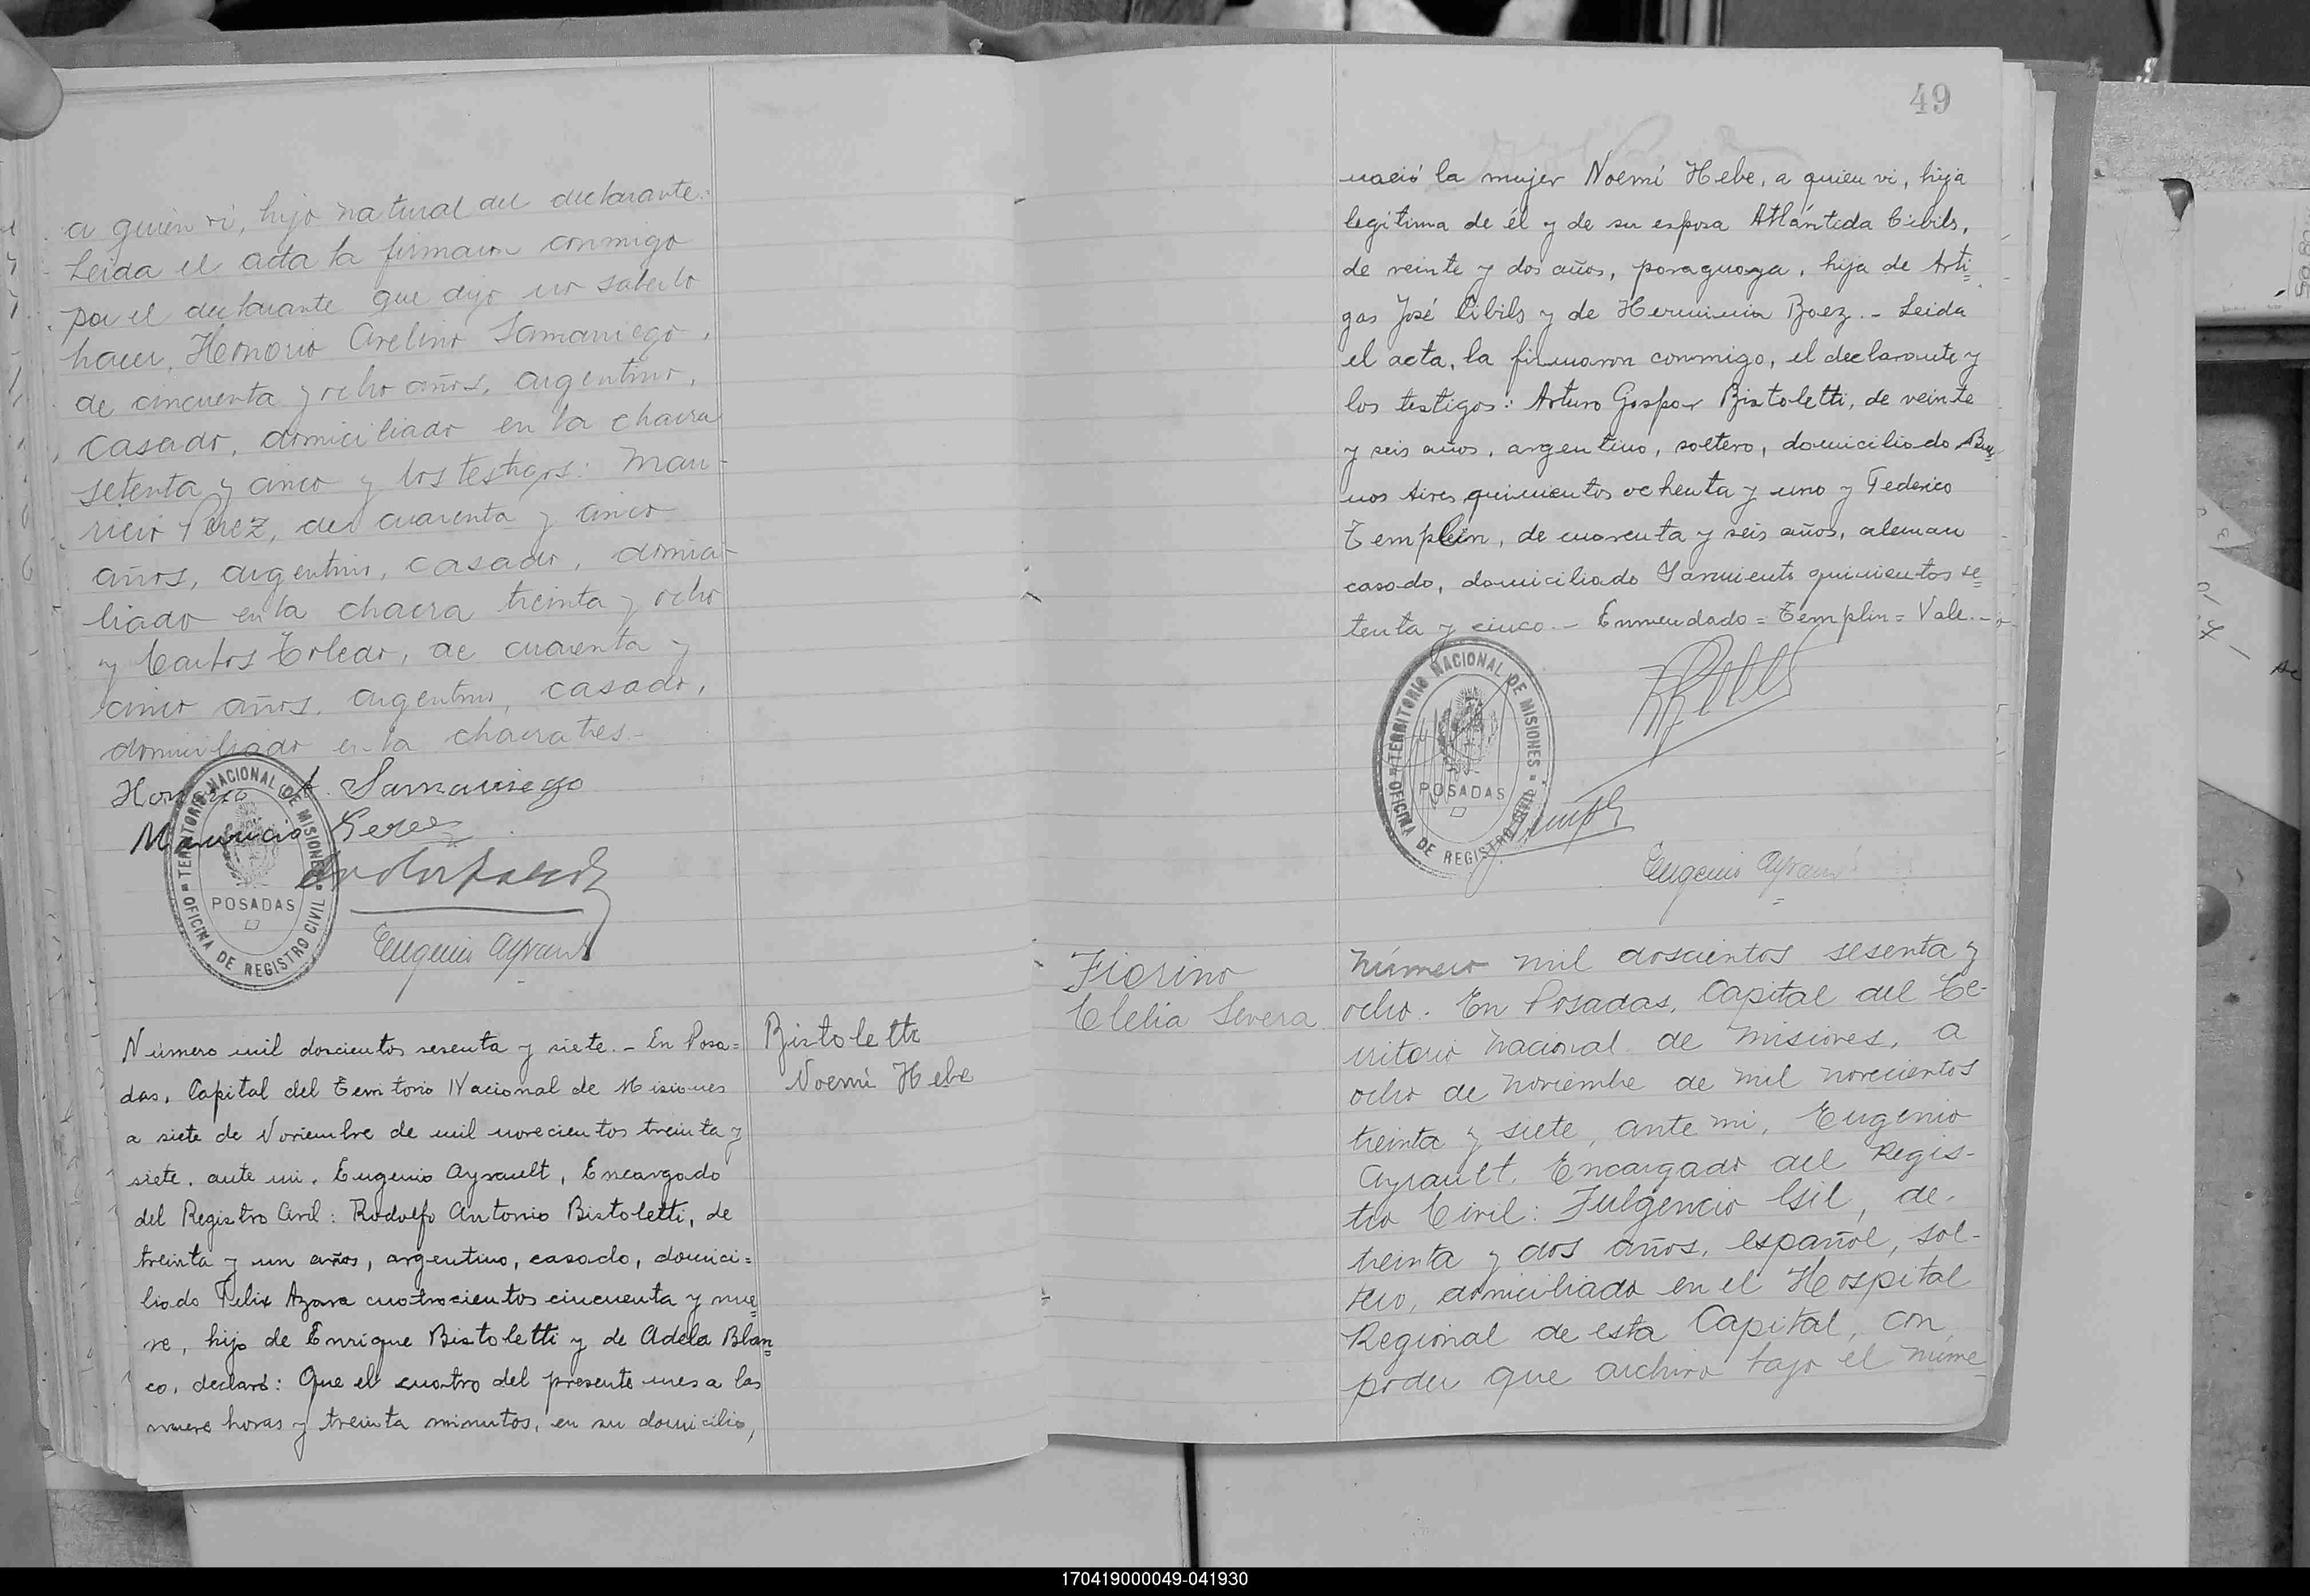 a quien vi, hijo natural del declarante.
Leida el acta la firmaron conmigo
por el declarante que dijo no saberlo
hacer, Honorio Avelino Samaniego,
de cincuenta y ocho años, argentino,
casado, domiciliado en la chacra
setenta y cinco y los testigos: Mau-
ricio Perez, de cuarenta y cinco
años, argentino, casado, domici-
liado en la chacra treinta y ocho
y Carlos Toledo, de cuarenta y
cinco años, argentino, casado,
domiciliado en la chacra tres.-
Honorio A. Samaniego
Mauricio Perez
TERRITORIO NACIONAL DE MISIONES
POSADAS
OFICINA DE REGISTRO CIVIL
Eugenio Ayrault
Número mil doscientos sesenta y siete.- En Posa=
das, Capital del Territorio Nacional de Misiones
a siete de Noviembre de mil novecientos treinta y
siete, ante mi, Eugenio Ayrault, Encargado
del Registro Civil: Rodolfo Antonio Bistoletti, de
treinta y un años, argentino, casado, domici=
liado Felix Azara cuatrocientos cincuenta y nue=
ve, hijo de Enrique Bistoletti y de Adela Blan=
co, declaró: Que el cuatro del presente mes a las
nueve horas y treinta minutos, en su domicilio,
Bistoletti
Noemí Hebe
49
nació la mujer Noemí Hebe, a quien vi, hija
legítima de él y de su esposa Atlántida Cibils,
de veinte y dos años, paraguaya, hija de Arti=
gas José Cibils y de Herminia Baez.- Leida
el acta, la firmaron conmigo, el declarante y
los testigos: Arturo Gaspar Bistoletti, de veinte
y seis años, argentino, soltero, domiciliado Bue=
nos Aires quinientos ochenta y uno y Federico
Templin, de cuarenta y seis años, aleman
casado, domiciliado Sarmiento quinientos se=
tenta y cinco.- Enmendado = Templin = Vale.-
TERRITORIO NACIONAL DE MISIONES
POSADAS
OFICINA DE REGISTRO CIVIL
Eugenio Ayrault
Fiorino
Clelia Severa
Número mil doscientos sesenta y
ocho. En Posadas, Capital del Te-
rritorio Nacional de Misiones, a
ocho de noviembre de mil novecientos
treinta y siete, ante mi, Eugenio
Ayrault, Encargado del Regis-
tro Civil: Fulgencio Gil, de
treinta y dos años, español, sol-
tero, domiciliado en el Hospital
Regional de esta Capital, con
poder que archivo bajo el núme
170419000049-041930